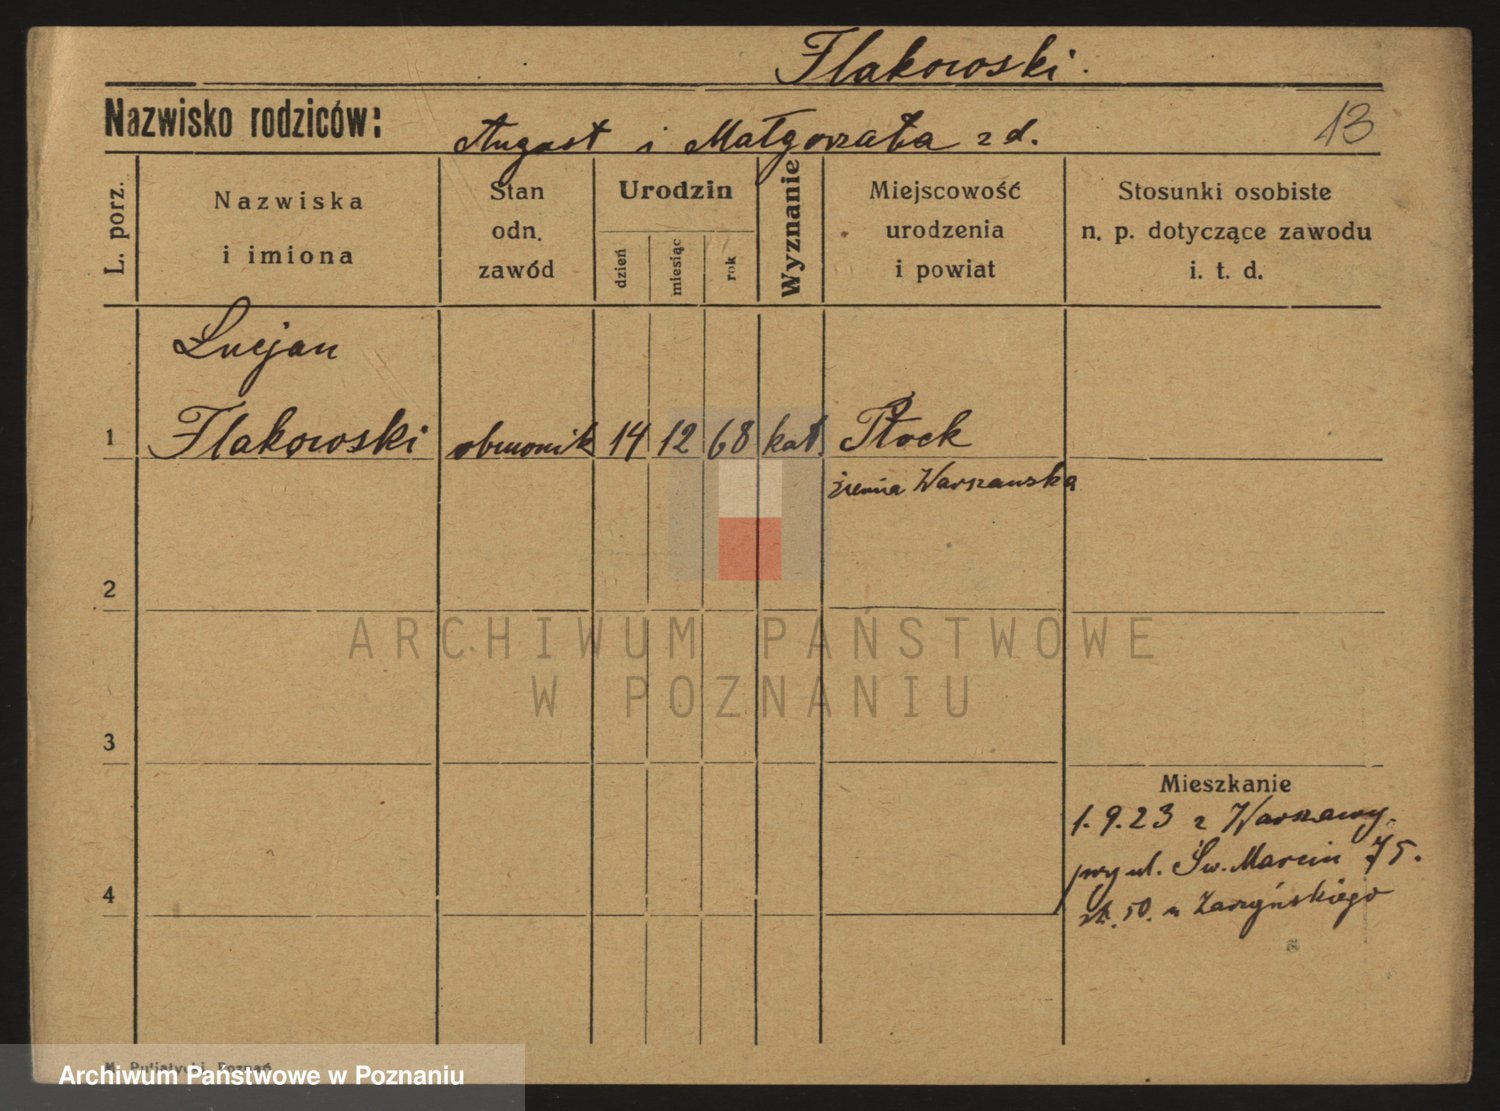 Flakowski.
Nazwisko rodziców:
August i Małgorzata z d.
13
L. porz.
Nazwiska
i imiona
Stan
odn.
zawód
Urodzin
dzień
miesiąc
rok
Wyznanie
Miejscowość
urodzenia
i powiat
Stosunki osobiste
n. p. dotyczące zawodu
i. t. d.
Łucjan
1 Flakowski 14 12 68 kat. Płock
ziemia Warszawska
2
ARCHIWUM PAŃSTWOWE
W POZNANIU
3
Mieszkanie
1.9.23 z Warszawy.
przy ul. Św. Marcin 75.
50. u Zarzyńskiego
4
Archiwum Państwowe w Poznaniu